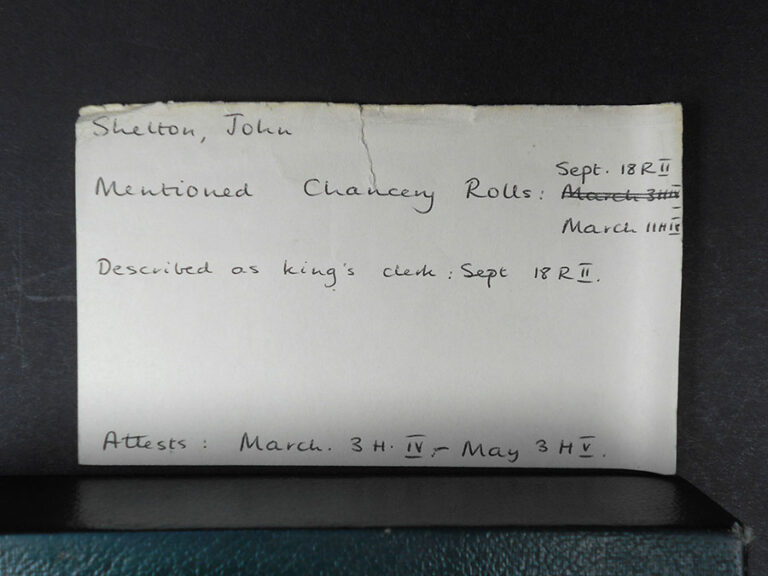 Shelton, John
Sept. 18 R II
Mentioned Chancery Rolls: March 3 H IV
March 11 H IV
Described as king's clerk : Sept 18 R II.
Attests : March. 3 H. IV - May 3 H V.